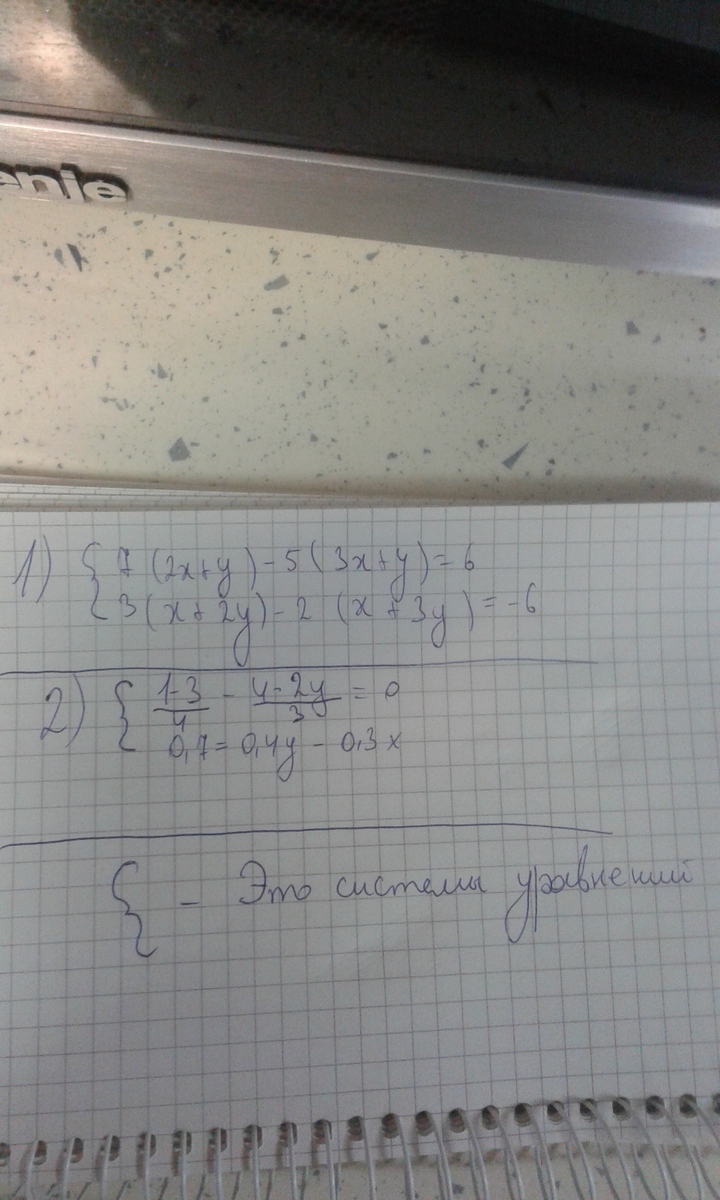 enje
1) { 7 (2x+y) - 5 (3x+y) = 6
3(x+2y) - 2 (x+3y) = -6
2) { 1-3/4 - 4-2y/3 = 0
0,7 = 0,4y - 0,3x
{ - Это системы уравнений